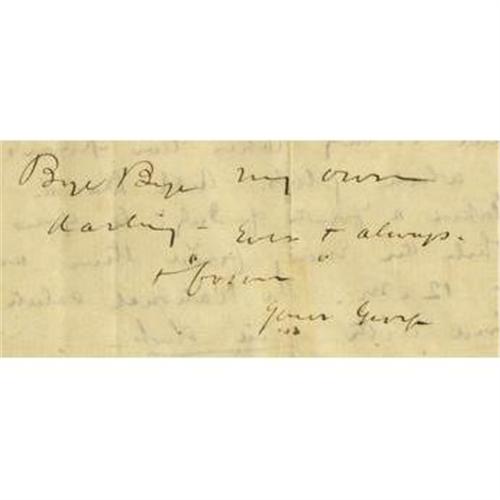 Bye Bye my own
darling - Ever + always.
+
Your George